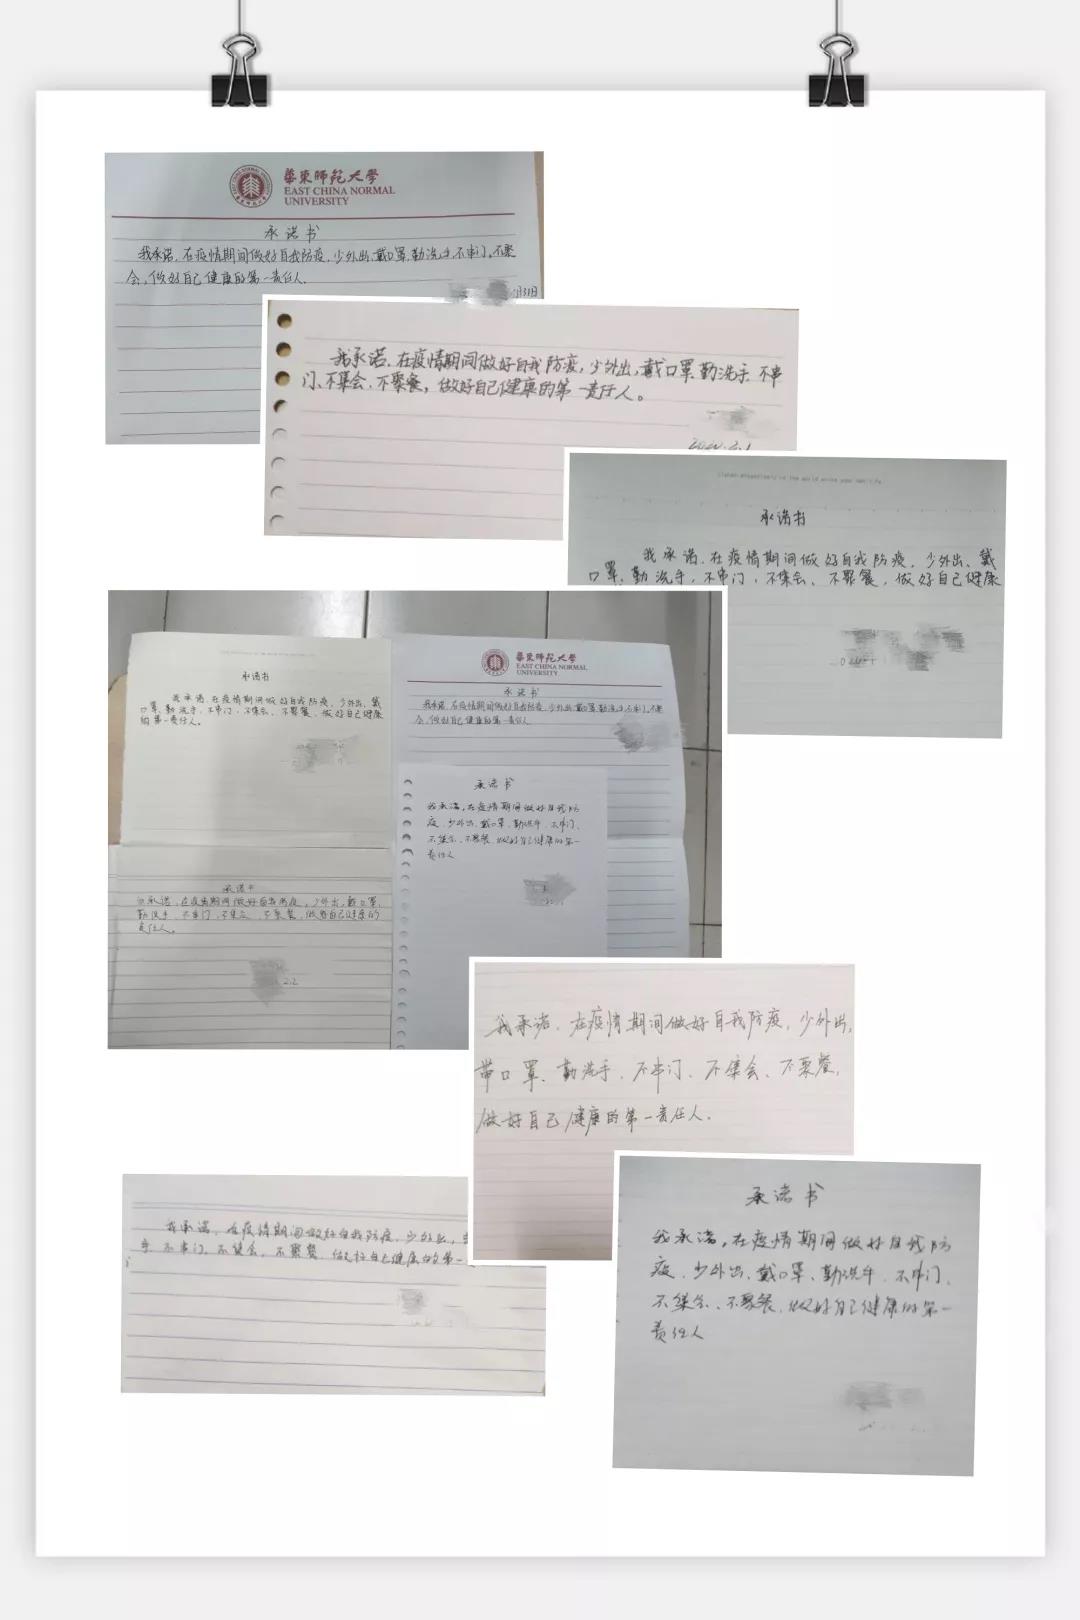 華東師範大學
EAST CHINA NORMAL
UNIVERSITY
承诺书
我承诺,在疫情期间做好自我防疫,少外出,戴口罩,勤洗手,不串门,不聚
会,做好自己健康的第一责任人.
月31日
我承诺,在疫情期间做好自我防疫,少外出,戴口罩,勤洗手,不串
门、不集会、不聚餐,做好自己健康的第一责任人。
承诺书
我承诺,在疫情期间做好自我防疫,少外出、戴
口罩、勤洗手,不串门,不集会、不聚餐,做好自己健康
承诺书
我承诺,在疫情期间做好自我防疫,少外出、戴
口罩、勤洗手,不串门,不集会、不聚餐,做好自己健康
的第一责任人。
華東師範大學
EAST CHINA NORMAL
UNIVERSITY
承诺书
我承诺,在疫情期间做好自我防疫,少外出,戴口罩,勤洗手,不串门,不聚
会,做好自己健康的第一责任人
承诺书
我承诺,在疫情期间做好自我防
疫,少外出、戴口罩、勤洗手,不串门、
不集会、不聚餐,做好自己健康的第一
责任人
承诺书
承诺,在疫情期间做好自我防疫,少外出,戴口罩,
勤洗手,不串门,不集会,不聚餐,做好自己健康的
责任人。
2.2
我承诺,在疫情期间做好自我防疫,少外出,
带口罩、勤洗手、不串门、不集会、不聚餐,
做好自己健康的第一责任人.
我承诺,在疫情期间做好自我防疫,少外出,
手,不串门,不集会,不聚餐,做好自己健康的第一
承诺书
我承诺,在疫情期间做好自我防
疫,少外出、戴口罩、勤洗手,不串门、
不集会、不聚餐,做好自己健康的第一
责任人